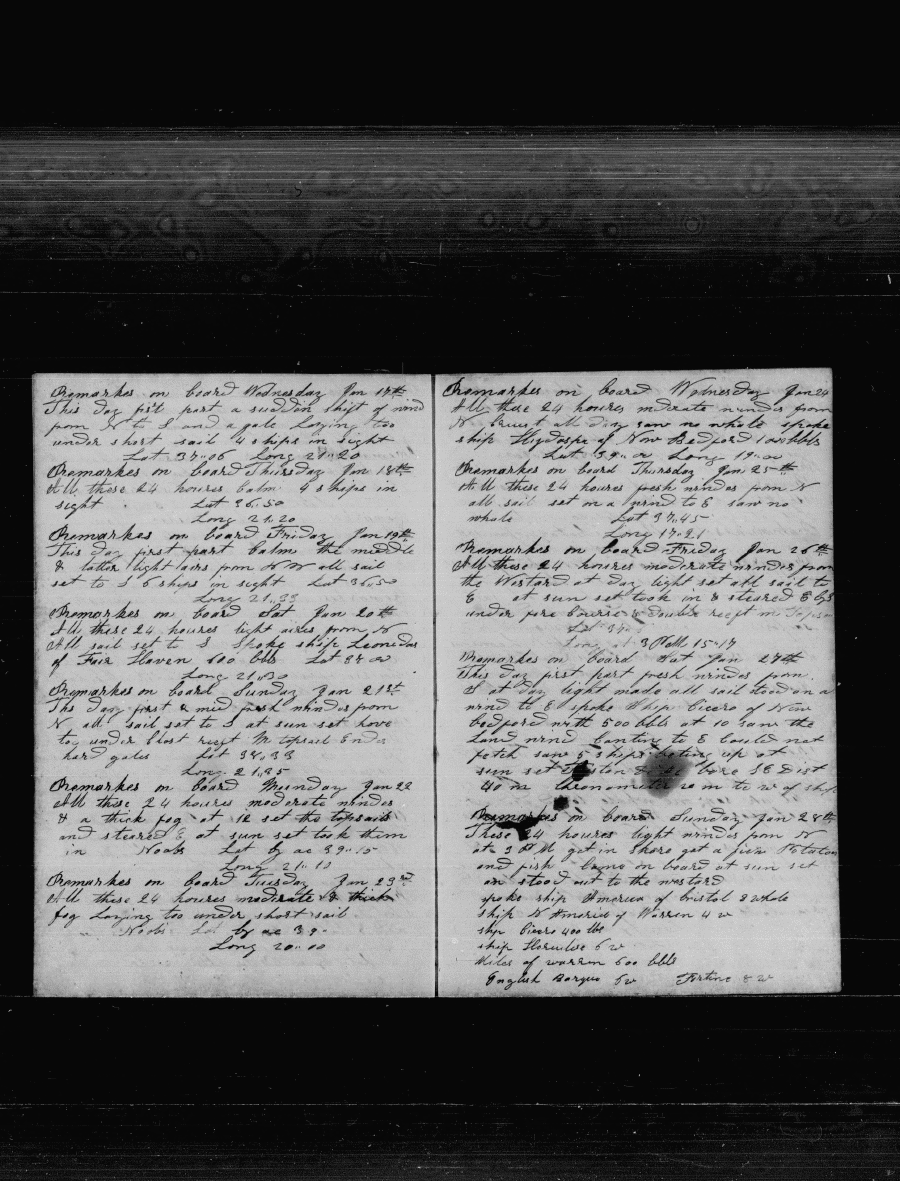 Remarks on board Wednesday Jan 17th
This day first part a suddin shift of wind
from N to S and a gale Laying too
under short sail 4 ships in sight
Lat 37.06 Long 21.20
Remarks on board Thursday Jan 18th
All these 24 houres Calm 4 ships in
sight Lat 36.50
Long 21.20
Remarks on board Friday Jan 19th
This day first part Calm the middle
& latter light airs from N W all sail
set to S 6 ships in sight Lat 36.50
Long 21.33
Remarks on board Sat Jan 20th
All these 24 houres light aires from N
All sail set to S Spoke ship Leonidas
of Fair Haven 600 bbls Lat 37
Long 21.30
Remarks on board Sunday Jan 21st
This day first & mid fresh windes from
N all sail set to S at sun set hove
too under Short M topsail Ends
hard gales Lat 38.33
Long 21.35
Remarks on board Munday Jan 22
All these 24 houres moderate windes
& a thick fog at 12 set the topsails
and steared E at sun set took them
in Noobs Lat by ac 39.15
Long 21.10
Remarks on board Tuesday Jan 23rd
All these 24 houres moderate & thick
fog Laying too under short sail
Noobs Lat by ac 39
Long 20.00
Remarkes on board Wednesday Jan 24
All these 24 houres moderate windes from
N all day saw no whale spoke
ship Hydaspe of New Bedford bbls
Lat 39 Long 19
Remarkes on board Thursday Jan 25th
All these 24 houres fresh windes from N
all sail set on a wind to E saw no
whale Lat 37.45
Long 17.21
Remarkes on board Friday Jan 26th
All these 24 houres moderate windes from
the Westard at day light set all sail to
E at sun set took in & steared E by S
under fore Course & double reeft
Lat 37
Long at 3 PM 15.17
Remarkes on board Sat Jan 27th
This day first part fresh windes from
at day light made all sail stood on a
wind to E spoke Ship Cicero of New
bedford with 500 bbls at 10 saw the
Land wind Canting to E Could not
fetch saw 5 ships up at
sun set bore SE Dist
40 m Chronometer 20 m to of ship
Remarkes on board Sunday Jan 28th
These 24 houres light windes from N
at 3 PM got in shore got a fiew Potatoes
and fish Came on board at sun set
an stood out to the westard
spoke ship America of bristol 2 whale
ship N America of Warren 4 w
ship Cicero 400 bbls
ship Herculese 6 w
Miles of warren 600 bbls
English Barque 6 w